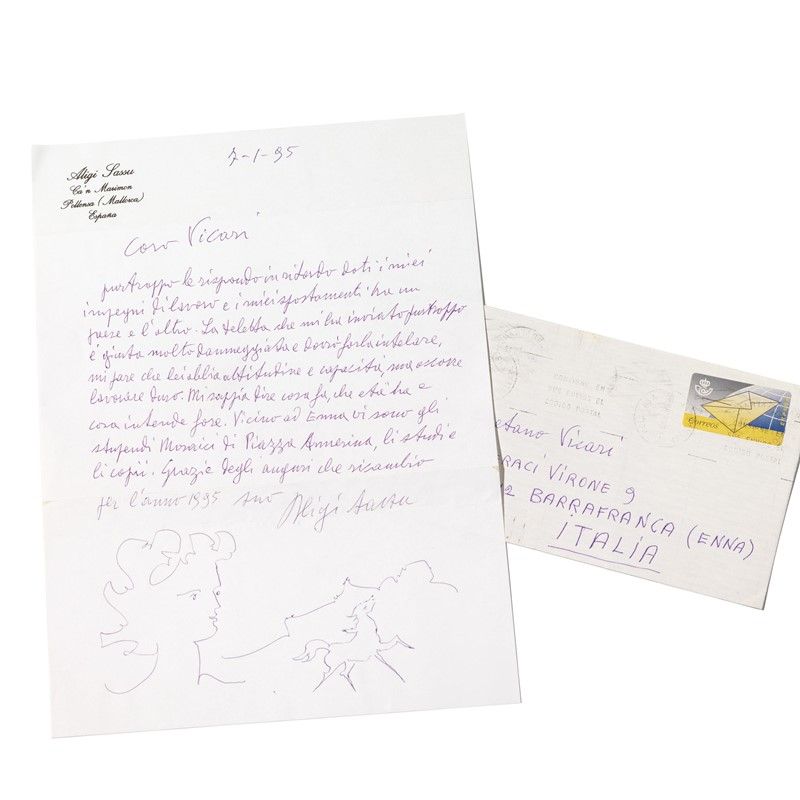 Aligi Sassu
Ca'n Marimon
Pollensa (Mallorca)
España
7-1-95
Caro Vicari
purtroppo le rispondo in ritardo dati i miei
impegni di lavoro e i miei spostamenti tra un
paese e l'altro. La teletta che mi ha inviato purtroppo
è giunta molto danneggiata e dovrò farla intelare,
mi pare che lei abbia attitudine e capacità, ma occorre
lavorare duro. Mi sappia dire cosa fa, che età ha e
cosa intende fare. Vicino ad Enna vi sono gli
stupendi Mosaici di Piazza Armerina, li studi e
li copii. Grazie degli auguri che ricambio
per l'anno 1995 suo Aligi Sassu
Correos
CODIGO POSTAL
etano Vicari
RACI VIRONE 9
2 BARRAFRANCA (ENNA)
ITALIA
CODIGO POSTAL